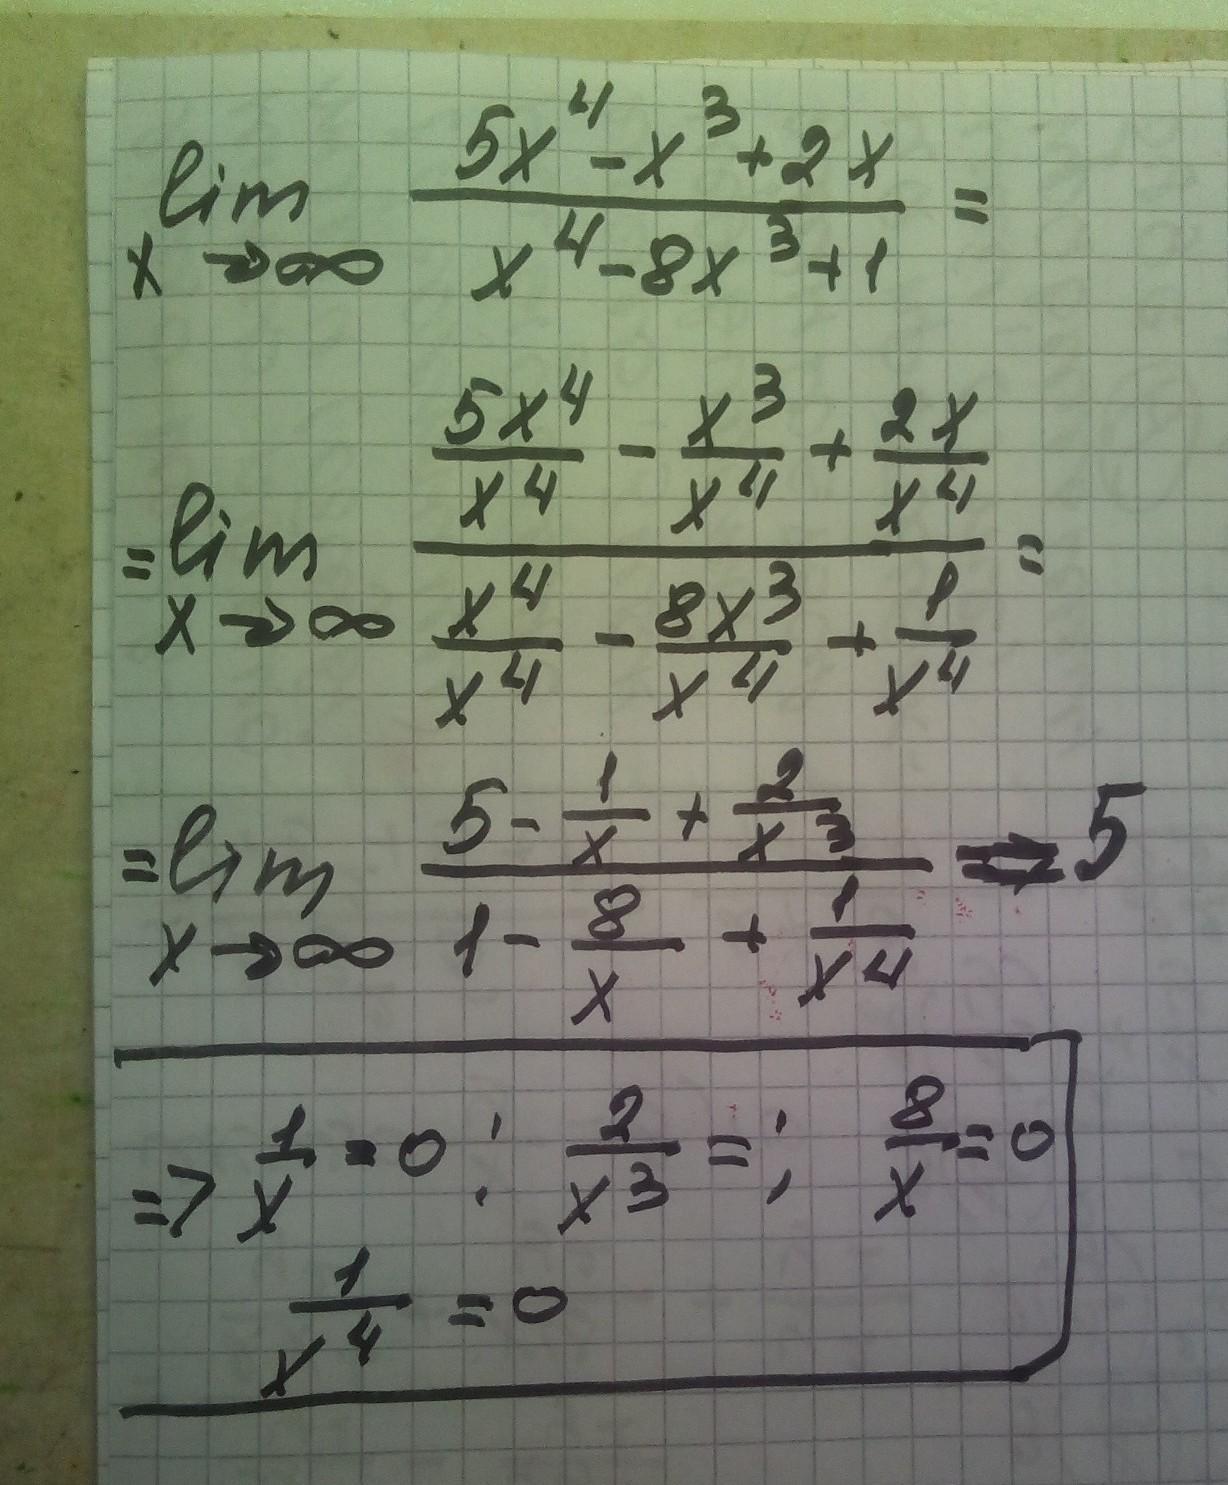 lim x→∞ (5x⁴ - x³ + 2x) / (x⁴ - 8x³ + 1) =
= lim x→∞ (5x⁴/x⁴ - x³/x⁴ + 2x/x⁴) / (x⁴/x⁴ - 8x³/x⁴ + 1/x⁴) =
= lim x→∞ (5 - 1/x + 2/x³) / (1 - 8/x + 1/x⁴) = 5
=> 1/x = 0 ; 2/x³ = ; 8/x = 0
1/x⁴ = 0